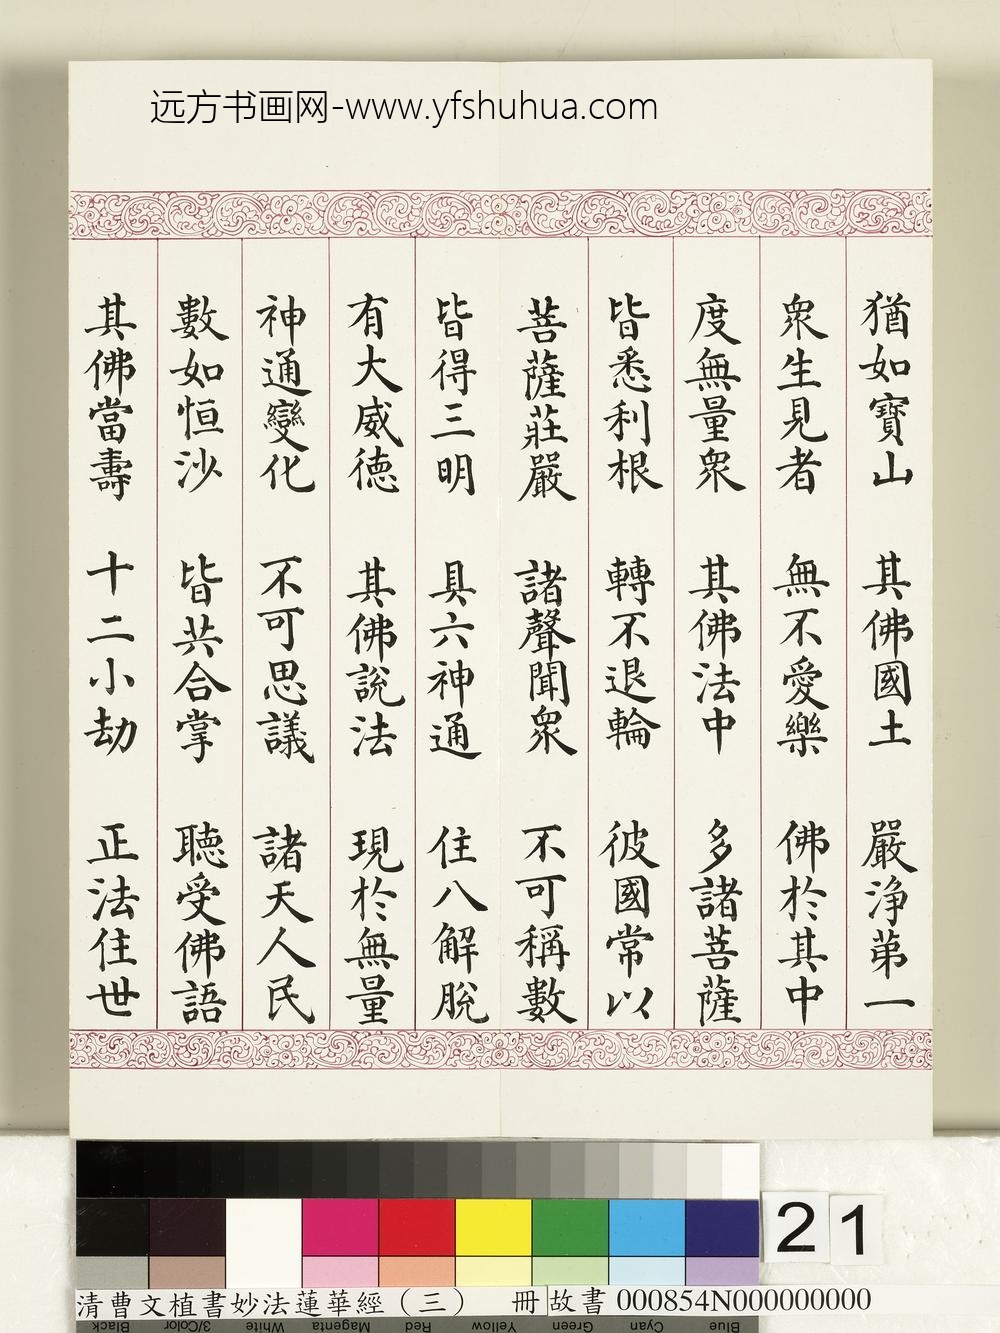 远方书画网-www.yfshuhua.com
猶如寶山 其佛國土 嚴淨第一
衆生見者 無不愛樂 佛於其中
度無量衆 其佛法中 多諸菩薩
皆悉利根 轉不退輪 彼國常以
菩薩莊嚴 諸聲聞衆 不可稱數
皆得三明 具六神通 住八解脫
有大威德 其佛說法 現於無量
神通變化 不可思議 諸天人民
數如恒沙 皆共合掌 聽受佛語
其佛當壽 十二小劫 正法住世
21
清曹文植書妙法蓮華經（三） 冊 故書 000854N000000000
Black 3/Color White Magenta Red Yellow Green Cyan Blue